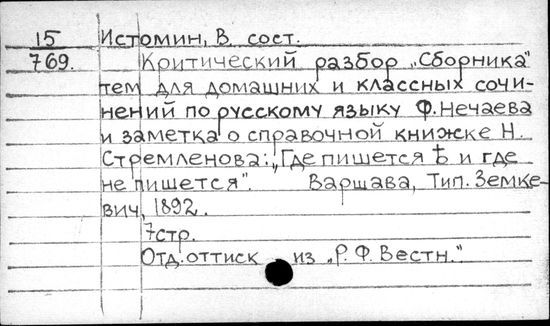 15 Истомин, В. сост.
769. Критический разбор „Сборника"
тем для домашних и классных сочи-
нений по русскому языку Ф. Нечаева
и заметка о справочной книжке Н.
Стремленова: „Где пишется Ѣ и где
не пишется". Варшава, Тип. Земке-
вич, 1892.
7стр.
Отд. оттиск из „Р. Ф. Вестн."